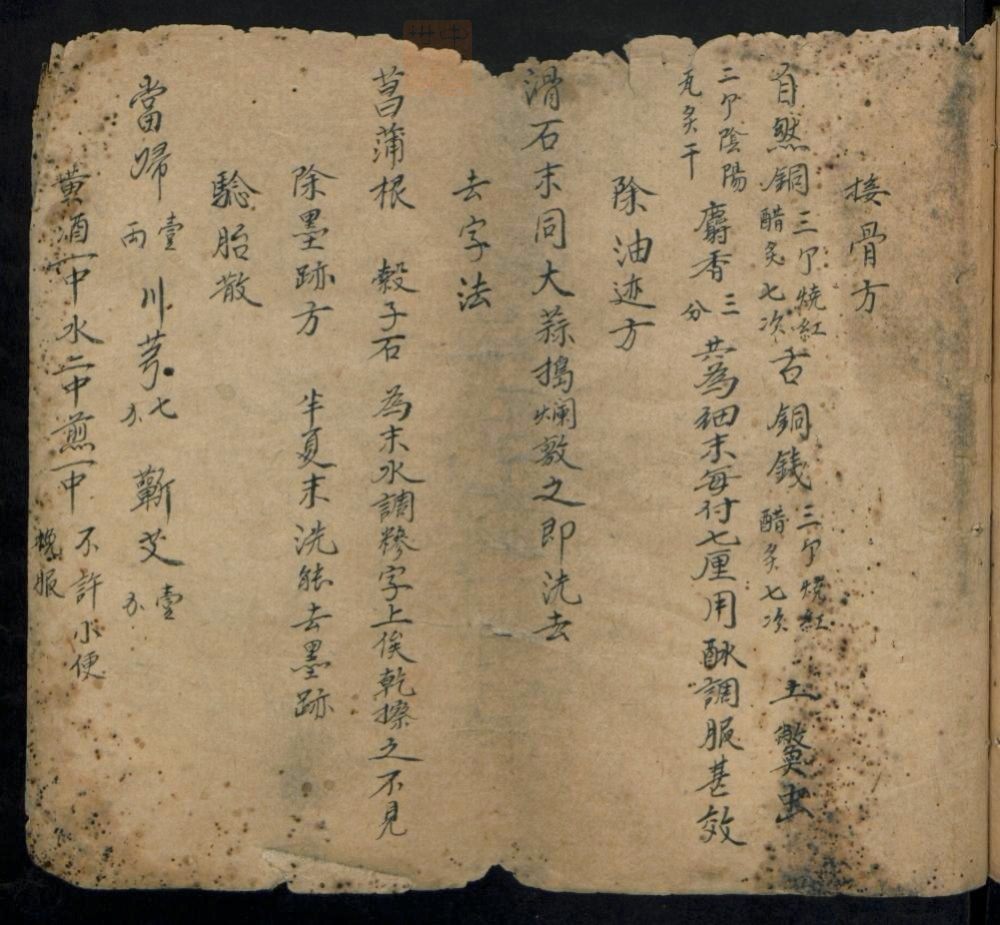 接骨方
自然銅三卩燒紅醋炙七次古銅錢三卩燒紅醋炙七次 土鱉虫
二卩陰陽瓦炙干 麝香三分 共為細末每付七厘用酥調服甚效
除油迹方
滑石末同大蒜搗爛敷之即洗去
去字法
菖蒲根 穀子石 為末水調糝字上俟乾擦之不見
除墨跡方 半夏末洗能去墨跡
騐胎散
當歸壹兩 川芎七分 蘄艾壹分
黃酒一中水二中煎一中 不許小便 晚服